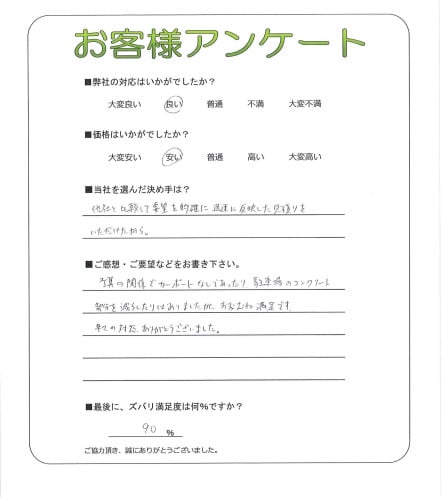 お客様アンケート
■弊社の対応はいかがでしたか?
大変良い 良い 普通 不満 大変不満
■価格はいかがでしたか?
大変安い 安い 普通 高い 大変高い
■当社を選んだ決め手は?
他社と比較して要望を的確に迅速に反映した見積りを
いただけたから。
■ご感想・ご要望などをお書き下さい。
予算の関係でカーポートなしであったり、駐車場のコンクリート
部分を減らしたりはありましたが、おおむね満足です。
の対応、ありがとうございました。
■最後に、ズバリ満足度は何%ですか?
90 %
ご協力頂き、誠にありがとうございました。